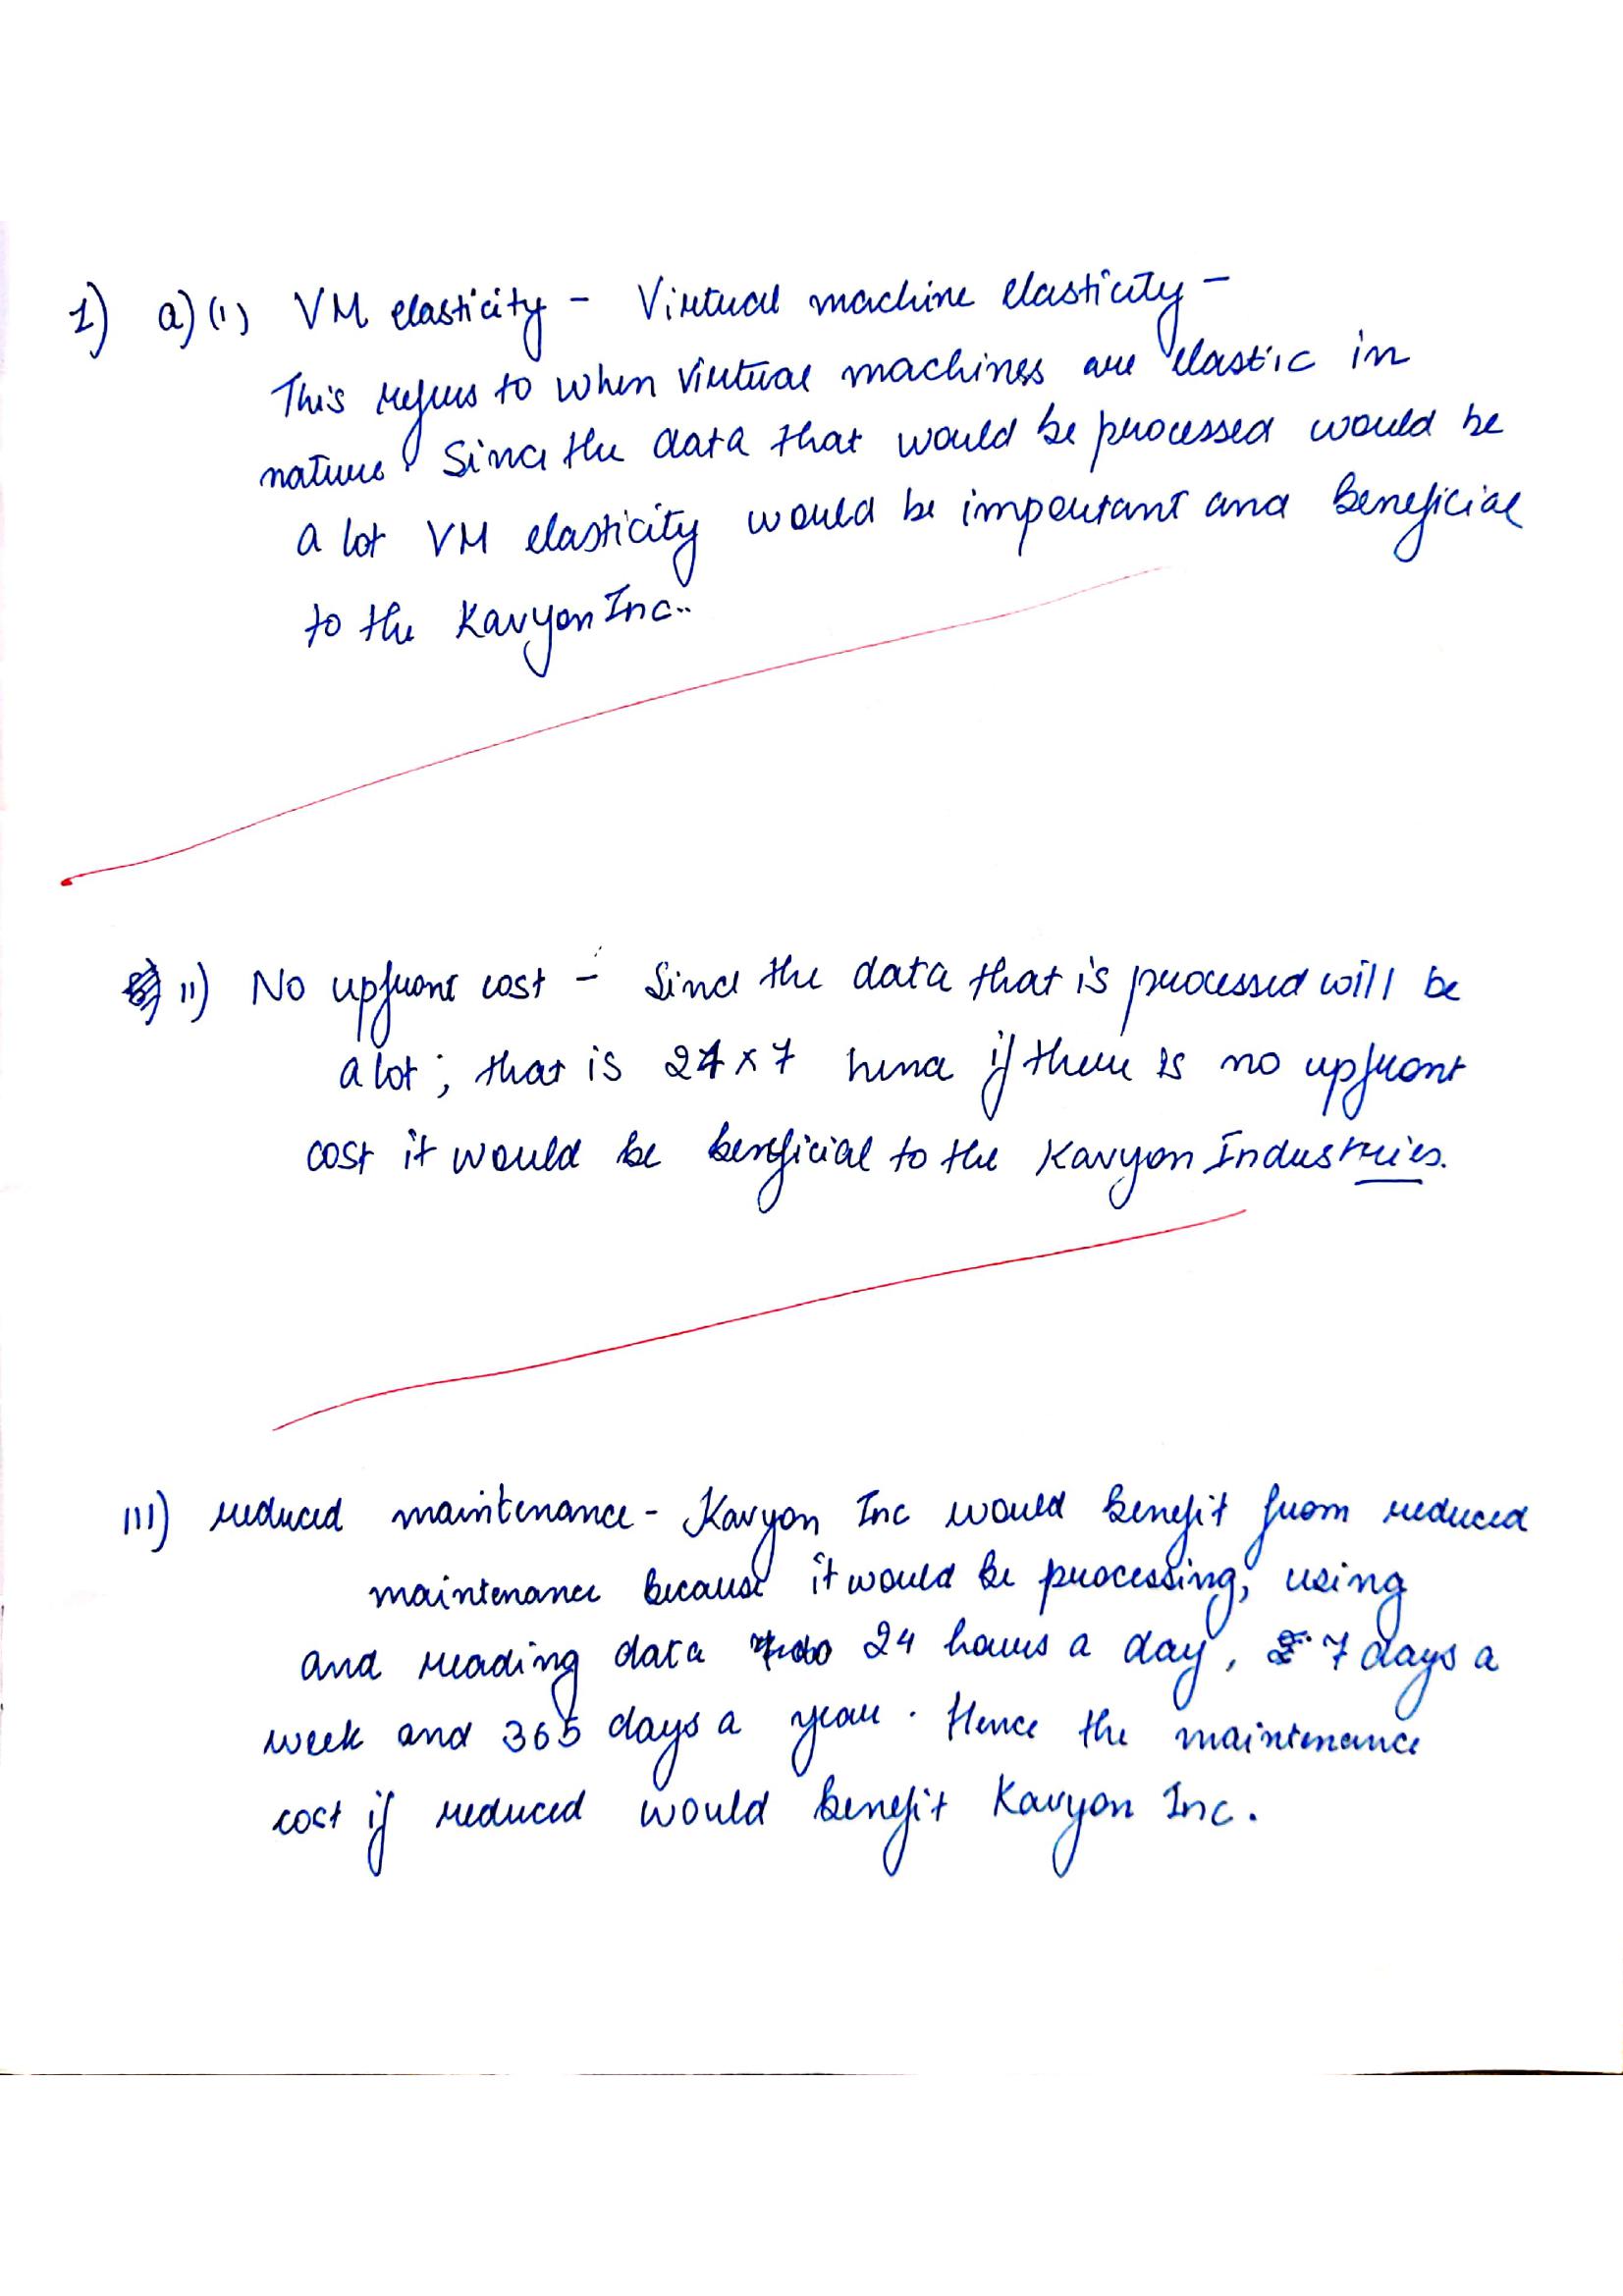 1) a) (i) VM elasticity - Virtual machine elasticity -
This refers to when virtual machines are elastic in
nature. Since the data that would be processed would be
a lot VM elasticity would be important and beneficial
to the Kavyon Inc..
ii) No upfront cost - Since the data that is processed will be
a lot; that is 24x7 hence if there is no upfront
cost it would be beneficial to the Kavyon Industries.
iii) reduced maintenance - Kavyon Inc would benefit from reduced
maintenance because it would be processing, using
and reading data 24 hours a day, 7 days a
week and 365 days a year. Hence the maintenance
cost if reduced would benefit Kavyon Inc.